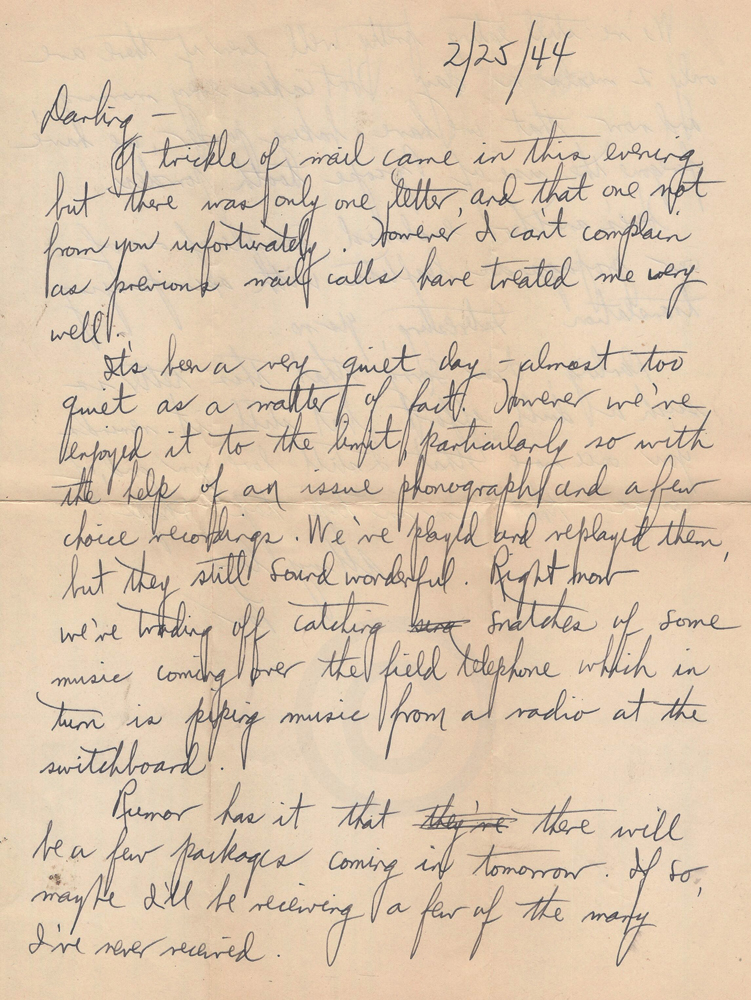 2/25/44
Darling —
A trickle of mail came in this evening
but there was only one letter, and that one not
from you unfortunately. However I can't complain
as previous mail calls have treated me very
well.
It's been a very quiet day – almost too
quiet as a matter of fact. However we've
enjoyed it to the limit, particularly so with
the help of an issue phonograph and a few
choice recordings. We've played and replayed them,
but they still sound wonderful. Right now
we're trading off catching snatches of some
music coming over the field telephone which in
turn is piping music from a radio at the
switchboard.
Rumor has it that they're there will
be a few packages coming in tomorrow. If so,
maybe I'll be receiving a few of the many
I've never received.